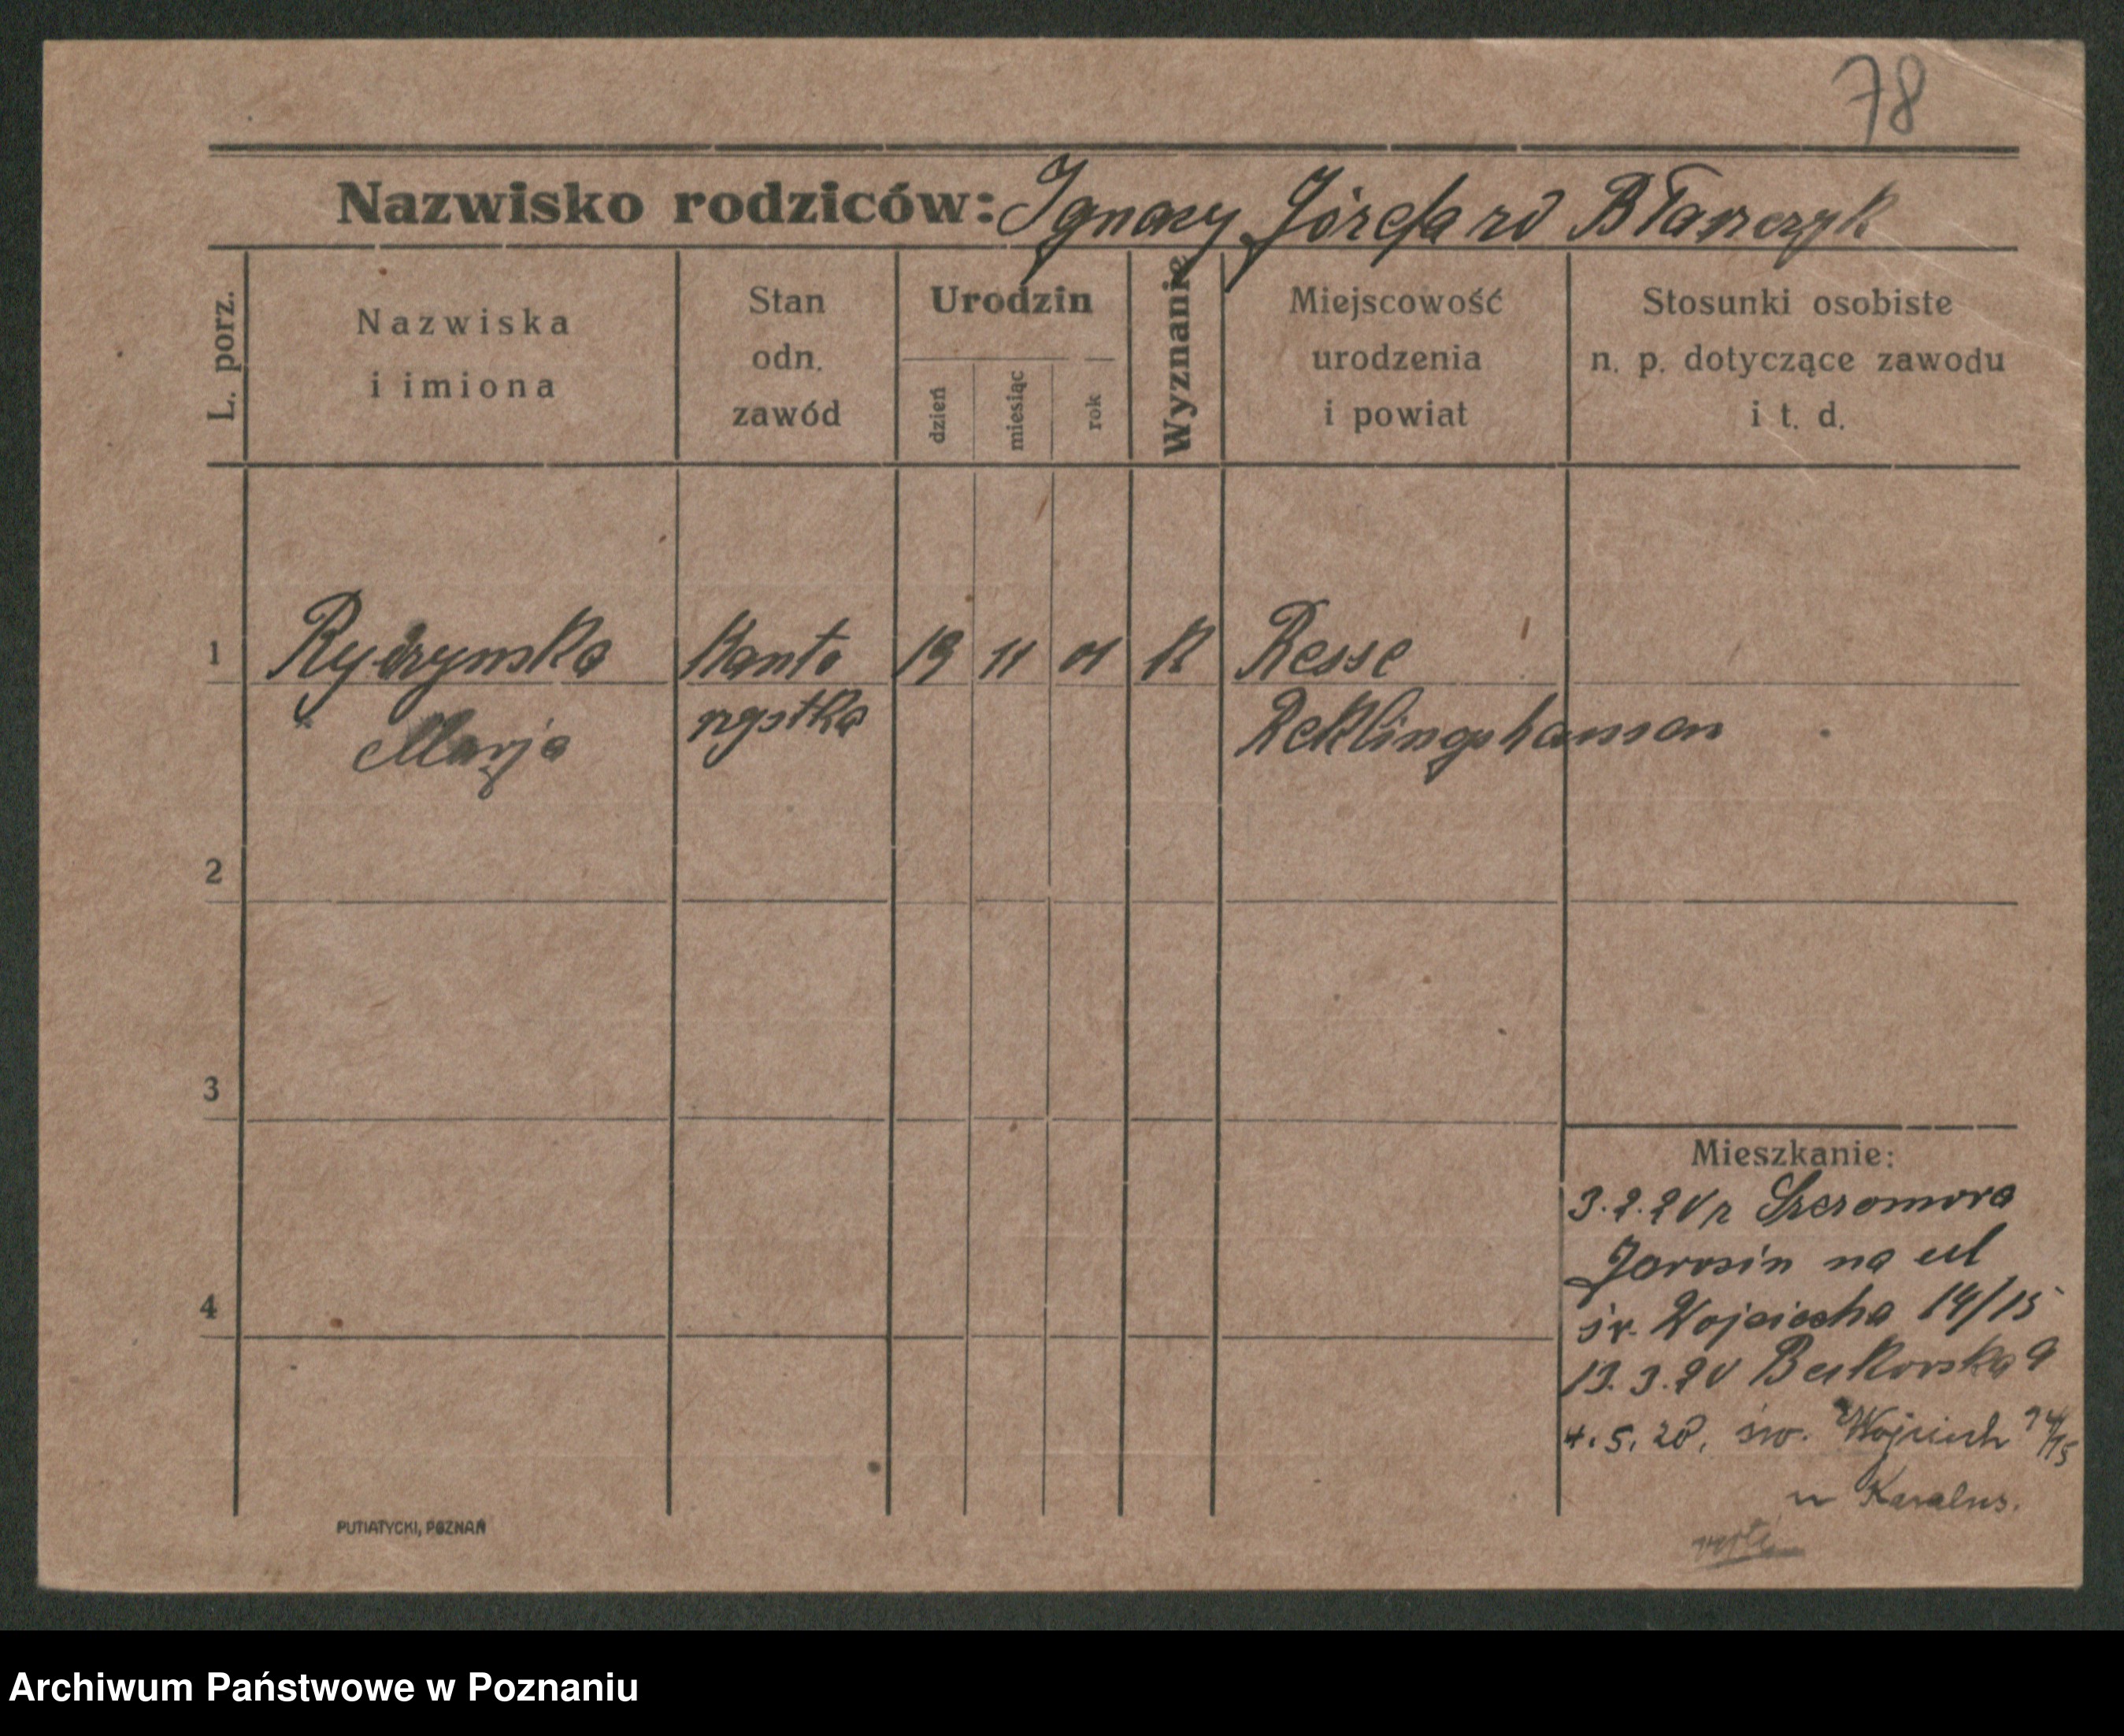 78
Nazwisko rodziców: Ignacy Józefa zd Błaszczyk
L. porz.
Nazwiska
i imiona
Stan
odn.
zawód
Urodzin
dzień
miesiąc
rok
Wyznanie
Miejscowość
urodzenia
i powiat
Stosunki osobiste
n. p. dotyczące zawodu
i t. d.
1 Rydzynska Kanto 19 11 01 K Resse
Marja rzystka Reklingshausen
2
3
4
Mieszkanie:
3.2.20 z
Jarocin na ul
św. Wojciecha 14/15
13.3.20 Bukowska 9
4.5.20. św. Wojciech 14/15
u
PUTIATYCKI, POZNAŃ
Archiwum Państwowe w Poznaniu